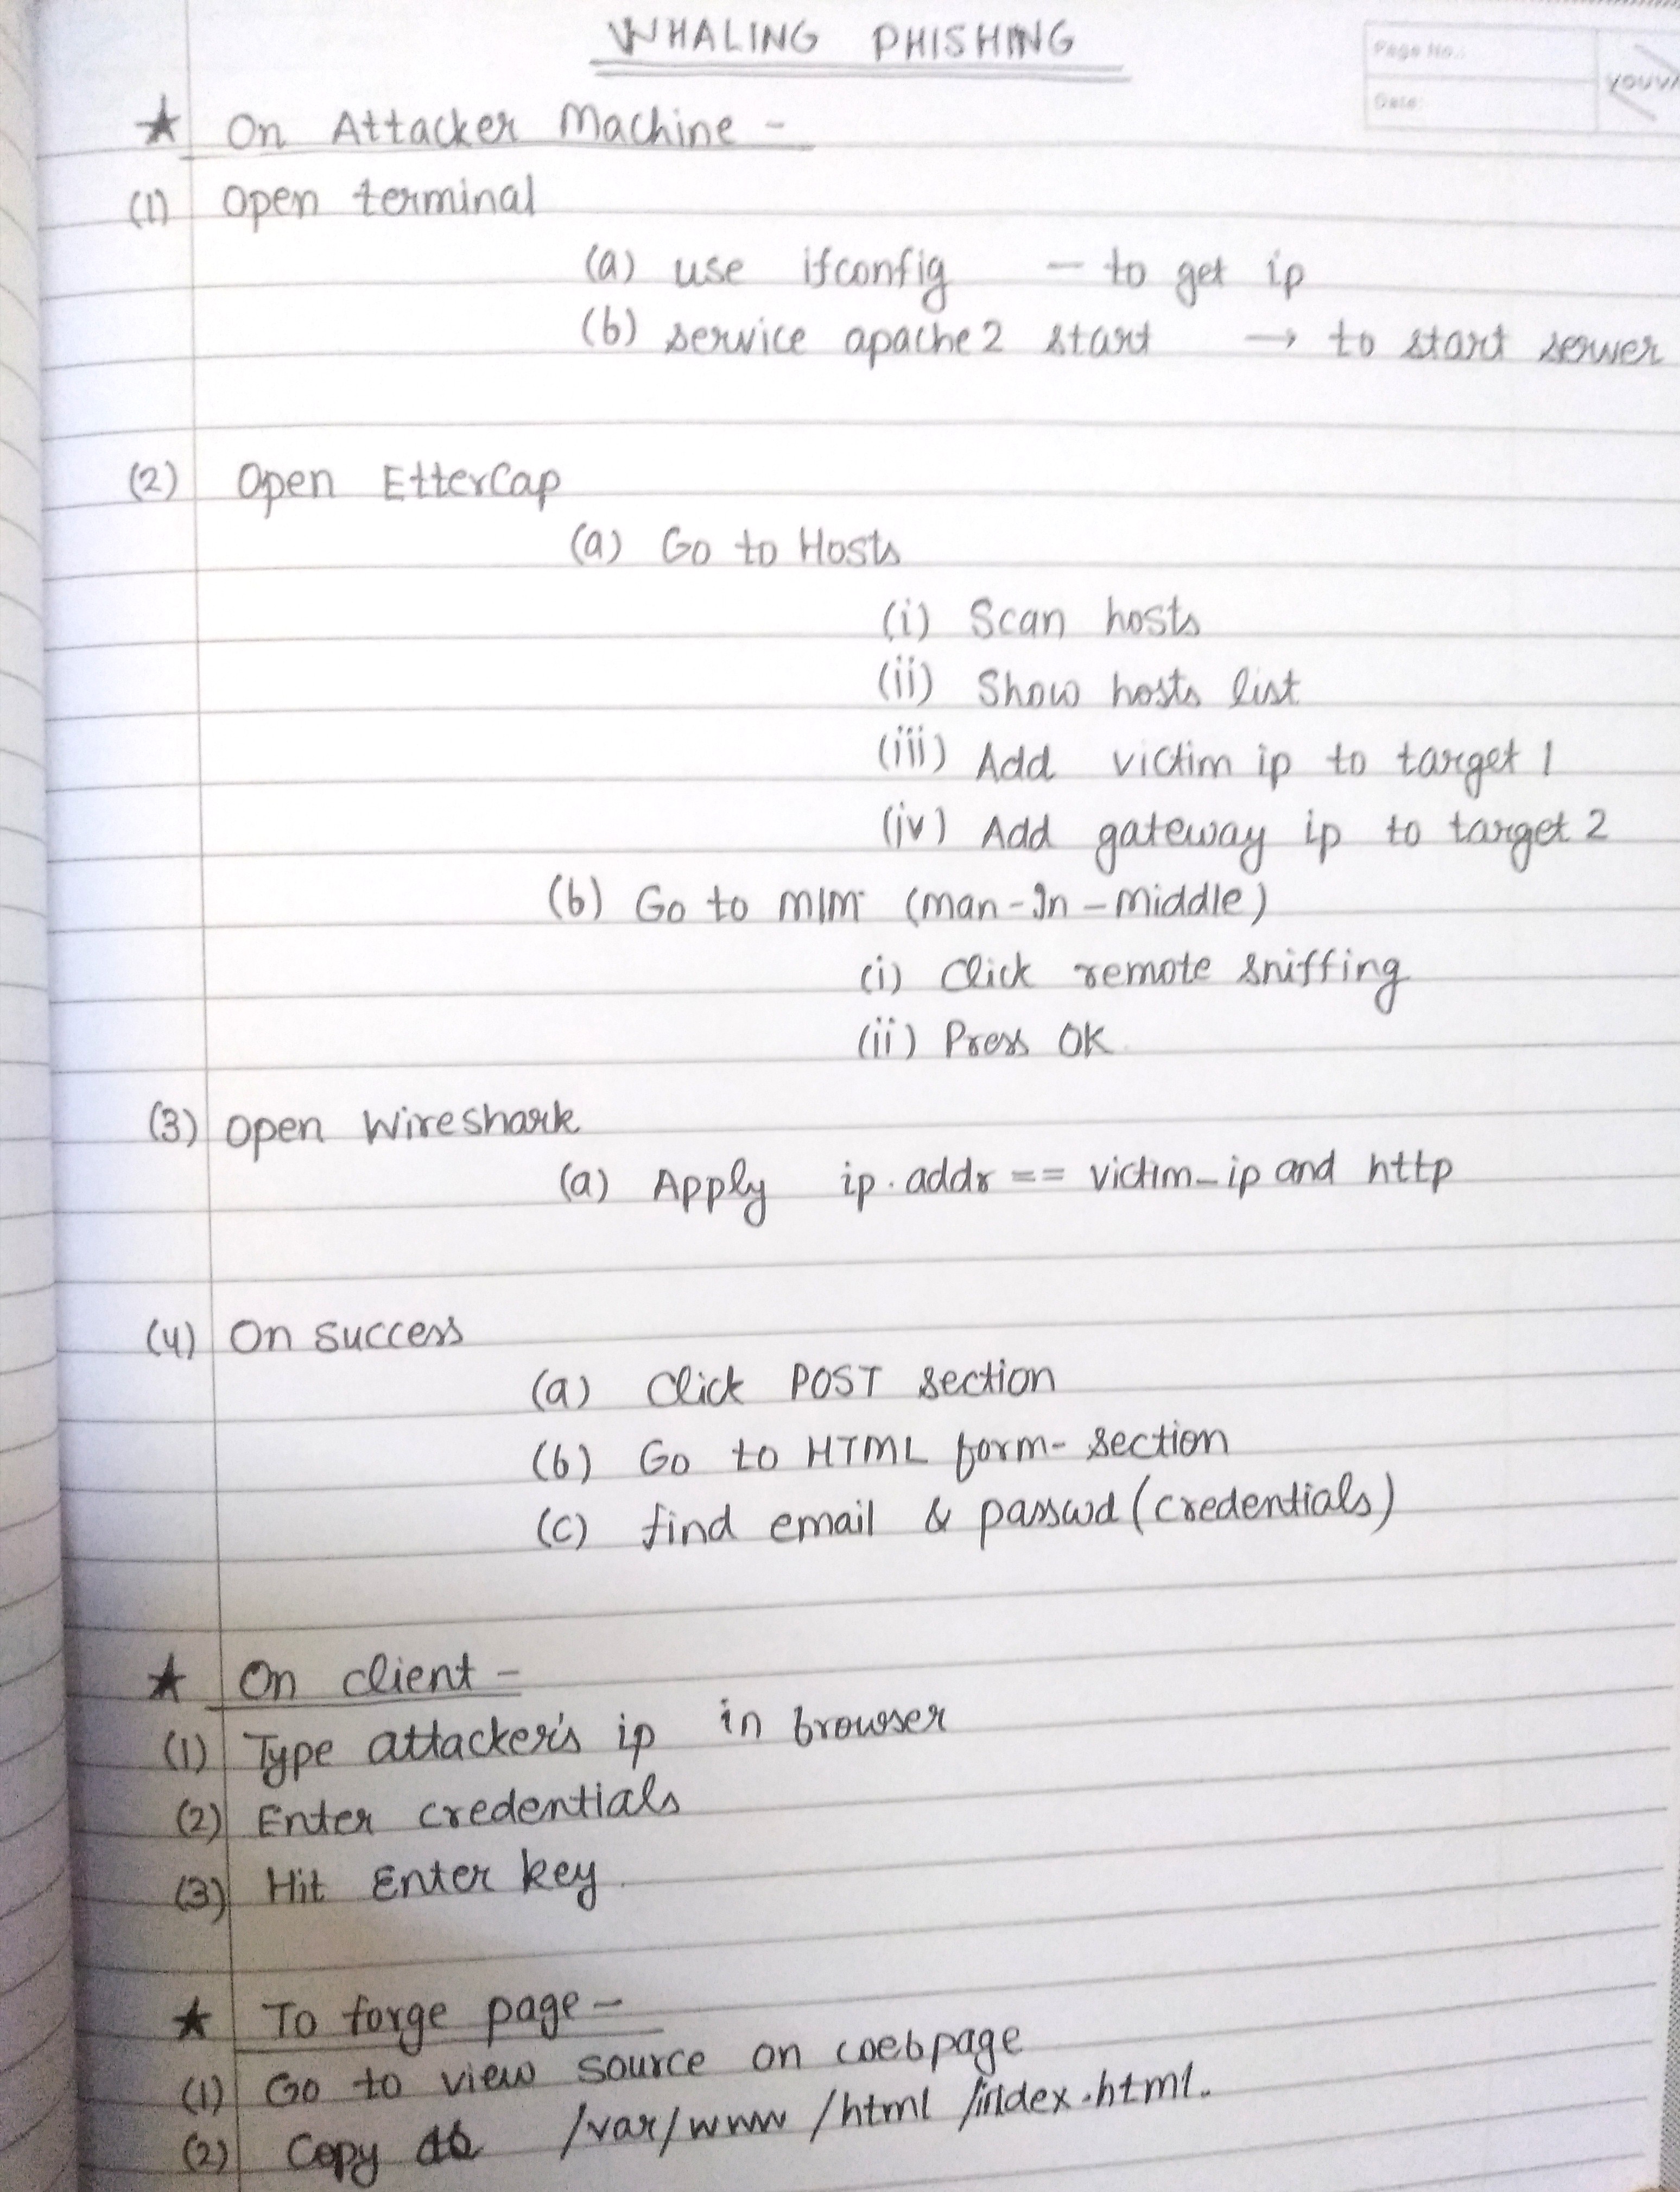 WHALING PHISHING
Page No.:
Date:
YOUVA
★ On Attacker Machine -
(1) Open terminal
(a) use ifconfig — to get ip
(b) service apache2 start → to start server
(2) Open EtterCap
(a) Go to Hosts
(i) Scan hosts
(ii) Show hosts list
(iii) Add victim ip to target 1
(iv) Add gateway ip to target 2
(b) Go to MIM (Man-In-Middle)
(i) Click remote sniffing
(ii) Press OK
(3) Open Wireshark
(a) Apply ip.addr == victim_ip and http
(4) On success
(a) Click POST section
(b) Go to HTML form- section
(c) find email & passwd (credentials)
★ On client -
(1) Type attacker's ip in browser
(2) Enter credentials
(3) Hit Enter key.
★ To forge page -
(1) Go to view source on webpage
(2) Copy /var/www/html/index.html.